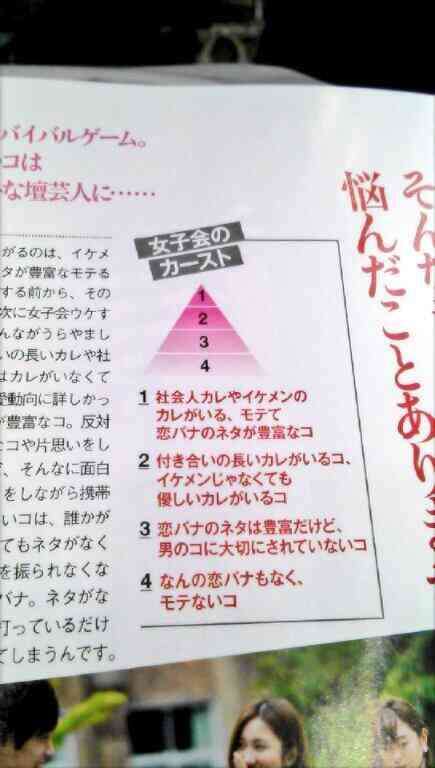 バイバルゲーム。
コは
な壇芸人に……
そんな
悩んだことあり
女子会の
カースト
1
2
3
4
1 社会人カレやイケメンの
カレがいる、モテて
恋バナのネタが豊富なコ
2 付き合いの長いカレがいるコ、
イケメンじゃなくても
優しいカレがいるコ
3 恋バナのネタは豊富だけど、
男のコに大切にされていないコ
4 なんの恋バナもなく、
モテないコ
がるのは、イケメ
タが豊富なモテる
する前から、その
次に女子会ウケす
んながうらやまし
いの長いカレや社
はカレがいなくて
愛動向に詳しかっ
が豊富なコ。反対
なコや片思いをし
、そんなに面白
をしながら携帯
いコは、誰かが
てもネタがなく
を振られなくな
バナ。ネタがな
打っているだけ
てしまうんです。